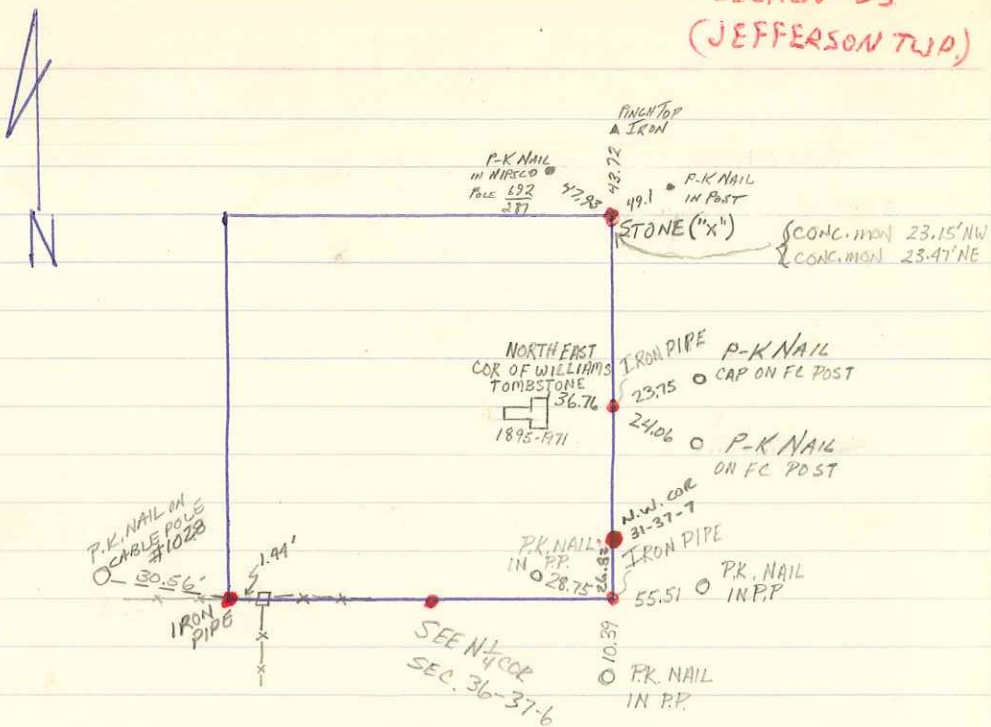 (JEFFERSON TWP.)
N
PINCH TOP
IRON
43.72
P-K NAIL
IN NIPSCO
POLE 692
287
47.93
49.1
P-K NAIL
IN POST
STONE ("X")
CONC. MON 23.15' NW
CONC. MON 23.47' NE
NORTH EAST
COR OF WILLIAMS
TOMBSTONE
36.76
1895-1971
IRON PIPE
23.75
P-K NAIL
CAP ON FC POST
24.06
P-K NAIL
ON FC POST
N.W. COR
31-37-7
26.82'
IRON PIPE
P.K. NAIL
IN P.P.
28.75
55.51
P.K. NAIL
IN P.P
10.39
P.K. NAIL
IN P.P.
P.K. NAIL ON
CABLE POLE
#1028
30.56'
1.44'
IRON
PIPE
SEE N 1/4 COR
SEC. 36-37-6